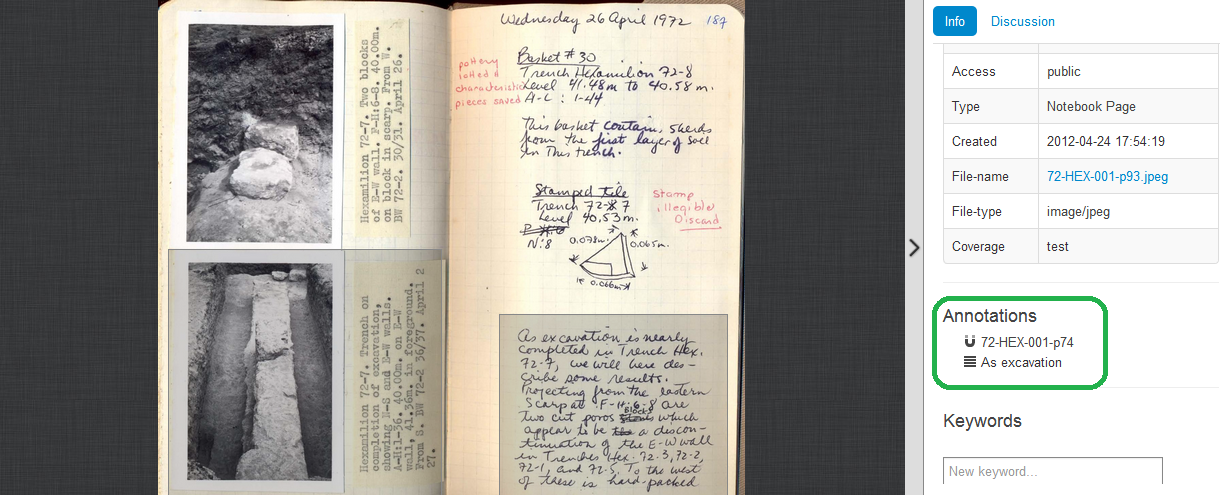 Hexamilion 72-7. Two blocks
of E-W wall. F-H:6-8. 40.00m.
on block in scarp. From W.
BW 72-2. 30/31. April 26.
Hexamilion 72-7. Trench on
completion of excavation,
showing N-S and E-W walls.
A-H:1-36. 40.00m. on E-W
wall, 41.36m. in foreground.
From S. BW 72-2 36/37. April 2
27.
Wednesday 26 April 1972
187
Basket # 30
Trench Hexamilion 72-8
Level 41.48m to 40.58 m.
A-L : 1-44
pottery
lotted &
characteristic
pieces saved
This basket contains sherds
from the first layer of soil
in this trench.
Stamped tile
Trench 72-8 7
Level 40.53m.
N:8
Stamp
illegible
Discard
0.078m.
0.065m.
0.066m
As excavation is nearly
completed in Trench Hex.
72-7, we will here des-
cribe some results.
Projecting from the eastern
Scarp at F-H:6-8 are
two cut poros Blocks which
appear to be the a discon-
tinuation of the E-W wall
in Trenches Hex. 72-3, 72-2,
72-1, and 72-5. To the west
of these is hard-packed
Info
Discussion
Access public
Type Notebook Page
Created 2012-04-24 17:54:19
File-name 72-HEX-001-p93.jpeg
File-type image/jpeg
Coverage test
Annotations
72-HEX-001-p74
As excavation
Keywords
New keyword...